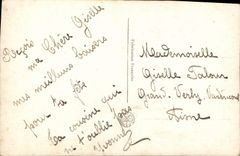 Reçois
ma Chère Gisèle
mes meilleurs baisers
pour ta fête
ta cousine qui
ne t'oublie pas
Yvonne
Mademoiselle
Gisèle
Grand
Aisne